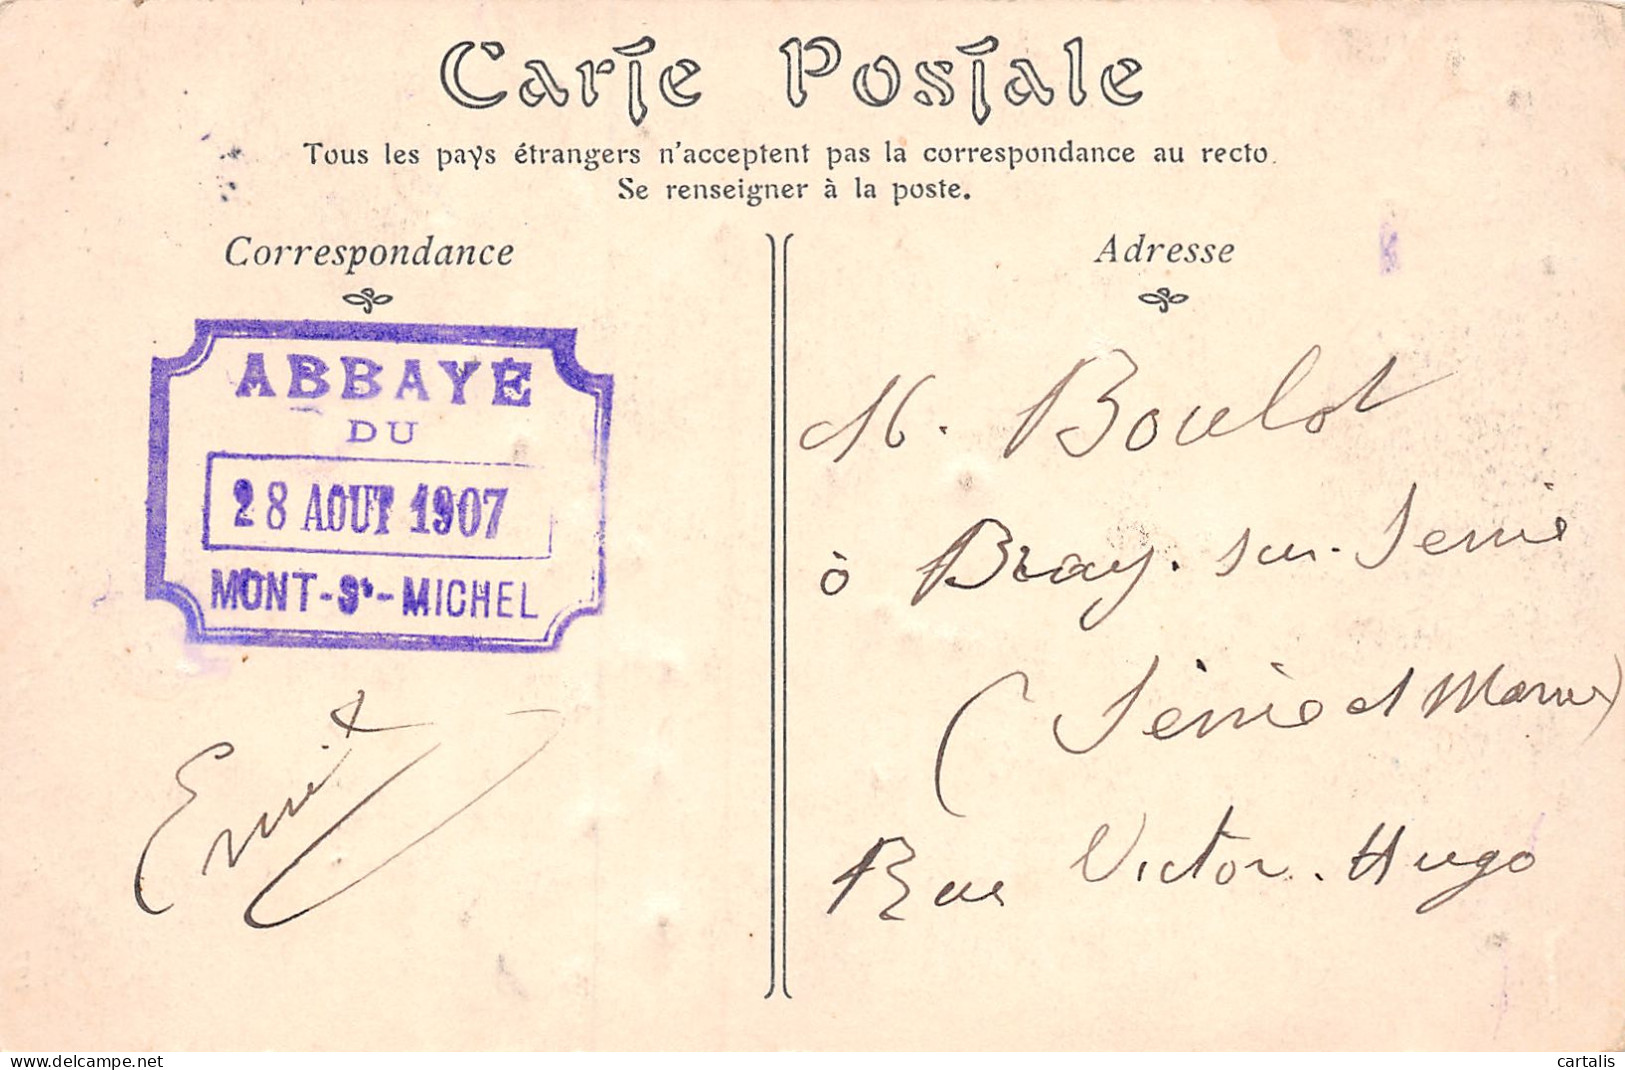 Carte Postale
Tous les pays étrangers n'acceptent pas la correspondance au recto.
Se renseigner à la poste.
Correspondance
ABBAYE
DU
28 AOUT 1907
MONT-St-MICHEL
Adresse
M. Boulot
à Bray-sur-Seine
(Seine et Marne)
Rue Victor-Hugo
delcampe.net
cartalis